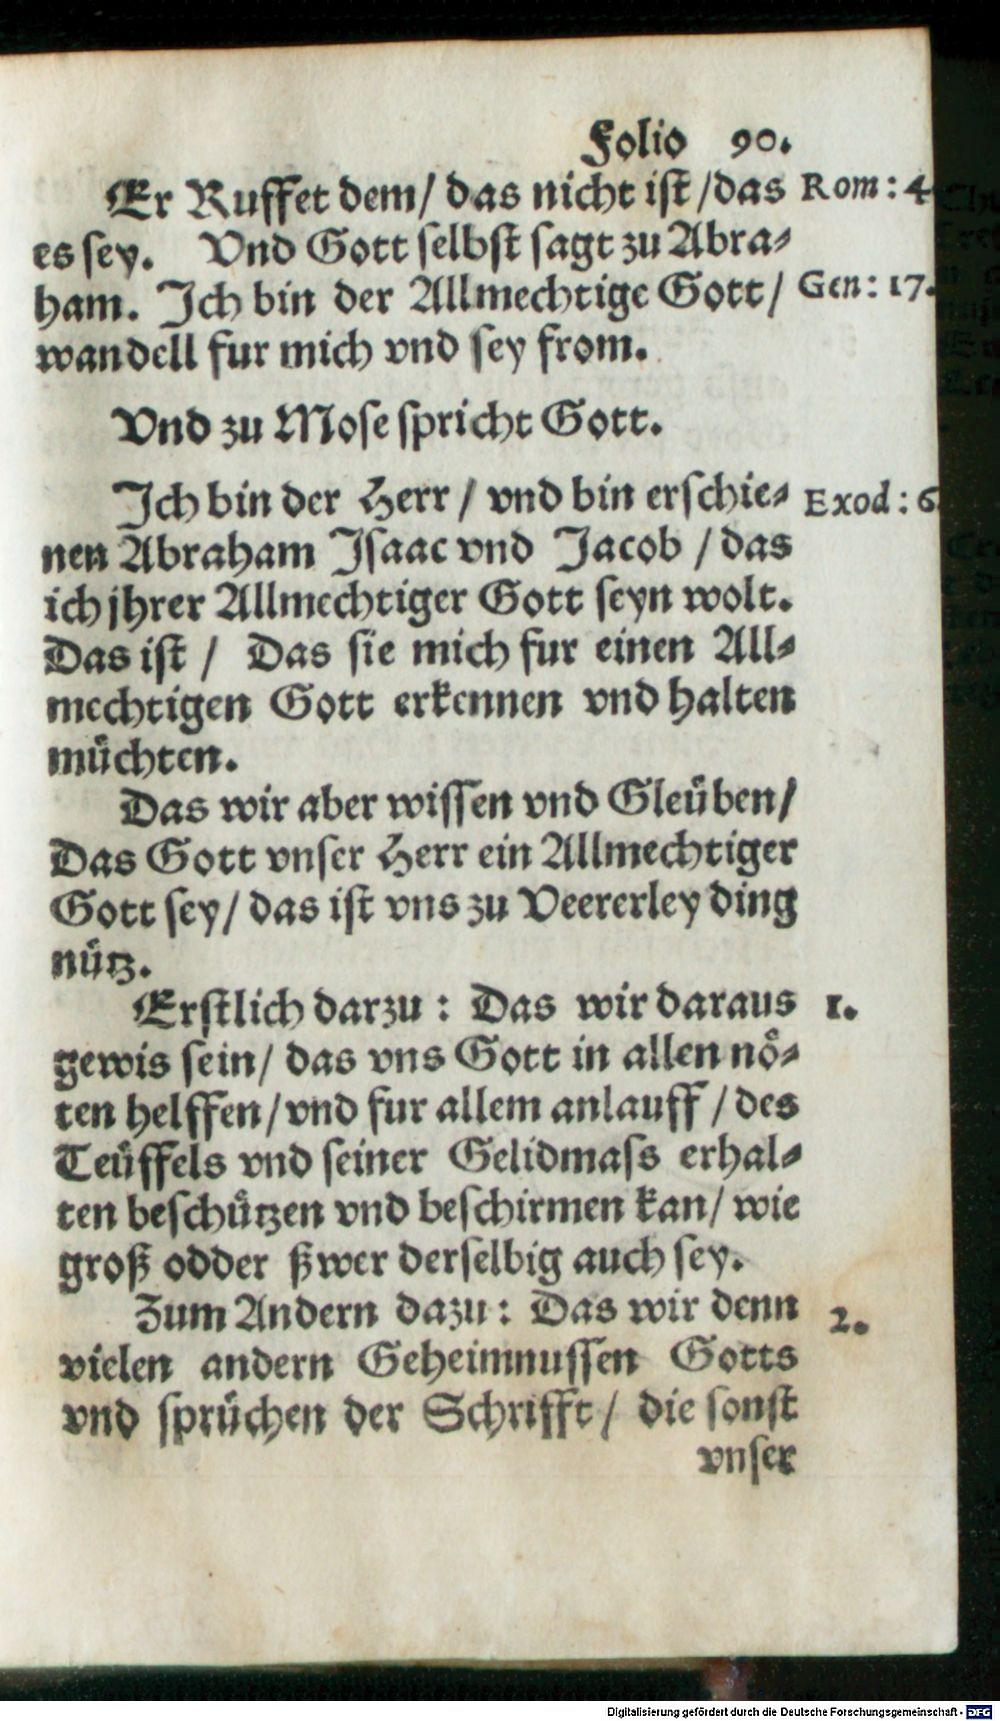 Folio 90.
Er Ruffet dem/ das nicht ist /das Rom: 4
es sey. Vnd Gott selbst sagt zu Abra-
ham. Ich bin der Allmechtige Gott/ Gen: 17.
wandell fur mich vnd sey from.
Vnd zu Mose spricht Gott.
Ich bin der Herr / vnd bin erschie- Exod: 6.
nen Abraham Isaac vnd Jacob / das
ich jhrer Allmechtiger Gott seyn wolt.
Das ist / Das sie mich fur einen All-
mechtigen Gott erkennen vnd halten
müchten.
Das wir aber wissen vnd Gleüben/
Das Gott vnser Herr ein Allmechtiger
Gott sey/ das ist vns zu Veererley ding
nütz.
Erstlich darzu : Das wir daraus 1.
gewis sein/ das vns Gott in allen nö-
ten helffen/vnd fur allem anlauff / des
Teüffels vnd seiner Gelidmass erhal-
ten beschützen vnd beschirmen kan/ wie
groß odder ßwer derselbig auch sey.
Zum Andern dazu: Das wir denn 2.
vielen andern Geheimnussen Gotts
vnd sprüchen der Schrifft/ die sonst
vnser
Digitalisierung gefördert durch die Deutsche Forschungsgemeinschaft - DFG